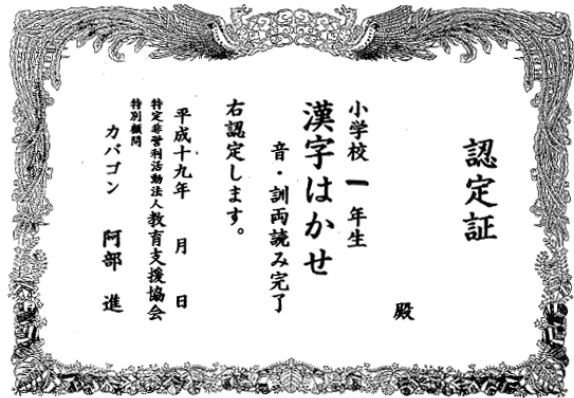 認定証
殿
小学校一年生
漢字はかせ
音・訓両読み完了
右認定します。
平成十九年　月　日
特定非営利活動法人教育支援協会
特別顧問
カバゴン　阿部　進